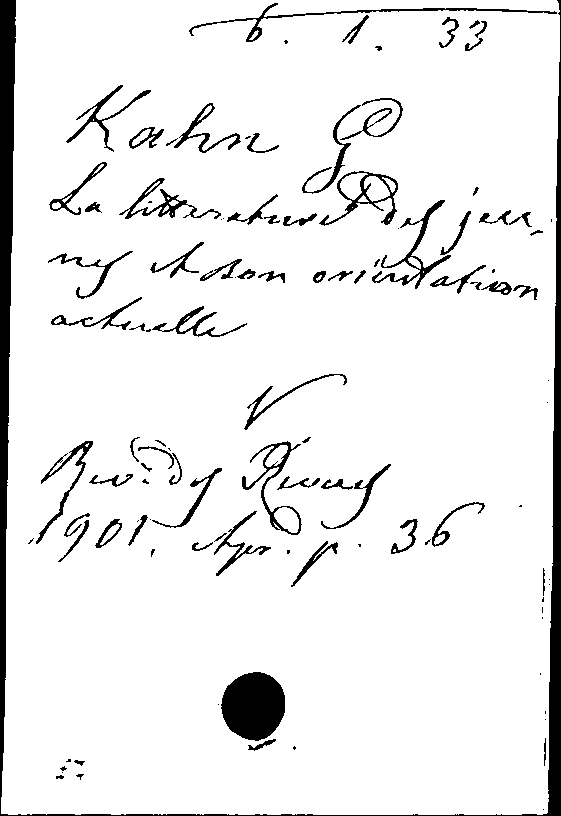 6. 1. 33
Kahn G
La litterature des jeu-
nes et son orientation
actuelle
V
Rev. des Revues
1901. Apr. p. 36